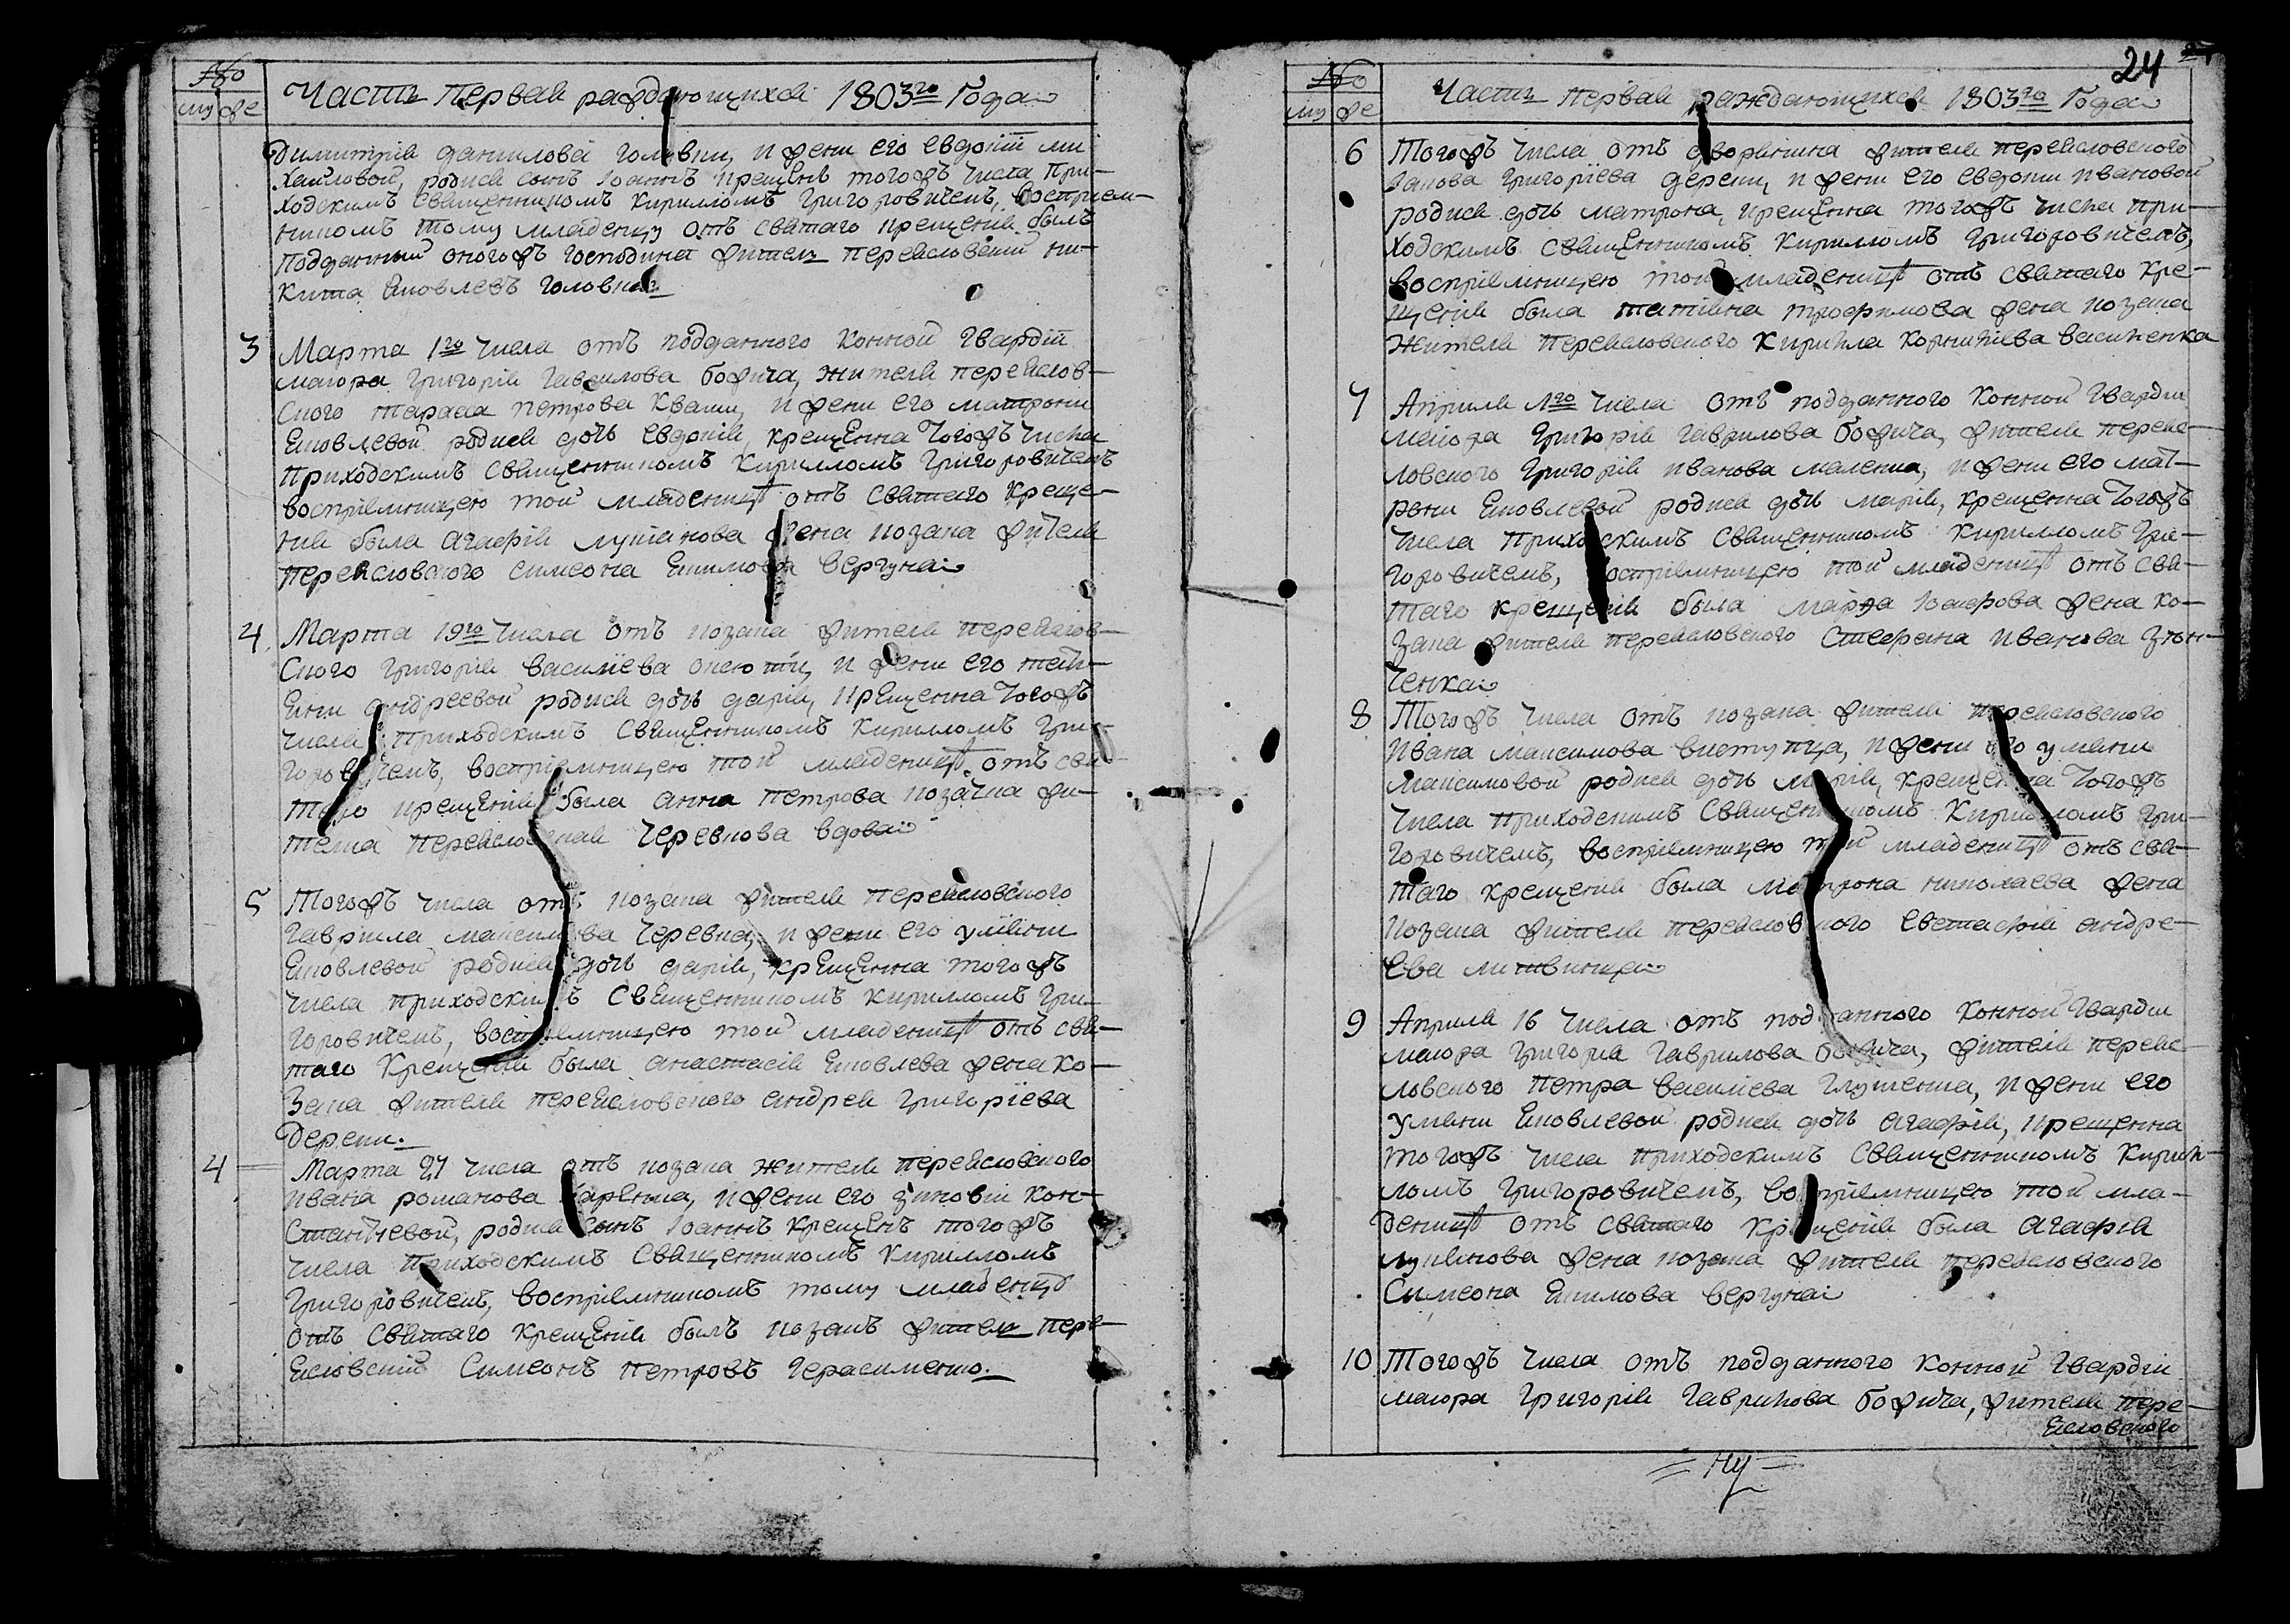 No
му же
Часть Первая раждающихся 1803го Года
Димитрія Данилова Головки, и жени его Евдокіи Ми-
хайловой, родися сынъ Іоаннъ крещенъ тогожъ числа При-
ходскимъ Священникомъ Кирилломъ Григоровичемъ, восприем-
никомъ тому младенцу отъ святаго крещенія былъ
Подданный оногожъ господина житель переясловский Ни-
кита Яковлевъ Головка
3 Марта 1го числа отъ подданного конной гвардіи
маиора Григорія Гаврилова Божича, жителя переяслов-
ского Тараса Петрова Кваши, и жени его Матрони
Яковлевой родися дочь Евдокія, крещенна тогожъ числа
Приходскимъ Священникомъ Кирилломъ Григоровичемъ
восприемницею той младеницѣ отъ святаго креще-
нія была Агафія Лукіанова жена козака жителя
переясловского Симеона Якимова Вергуна
4 Марта 19го числа отъ козака жителя переяслов-
ского Григорія Василіева и жени его Тати-
яни Андреевой родися дочь Дарія, крещенна тогожъ
числа приходскимъ Священникомъ Кирилломъ Гри-
горовичемъ, восприемницею той младеницѣ отъ свя-
таго крещенія была Анна Петрова козачка жи-
телка переясловская Черевкова вдова
5 Тогожъ числа отъ козака жителя переясловского
Гавриила Максимова Черевка, и жени его Уліяни
Яковлевой родися дочь Дарія, крещенна тогожъ
числа приходскимъ Священникомъ Кирилломъ Гри-
горовичемъ, восприемницею той младеницѣ отъ свя-
таго крещенія была Анастасія Яковлева жена ко-
зака жителя переясловского Андрея Григоріева
Дереки.
4 Марта 27 числа отъ козака жителя переясловского
Ивана Романова и жени его Зиновіи Кон-
стантіевой, родися сынъ Іоаннъ крещенъ тогожъ
числа приходскимъ Священникомъ Кирилломъ
Григоровичемъ, восприемникомъ тому младенцу
отъ святаго крещенія былъ козакъ житель пере-
ясловскій Симеонъ Петровъ Герасименко.
24
No
му же
Часть Первая раждающихся 1803го Года
6 Тогожъ числа отъ дворянина жителя переясловского
Іакова Григоріева Дереки, и жени его Евдокии Ивановой
родися дочь Матрона, крещенна тогожъ числа при-
ходскимъ Священникомъ Кирилломъ Григоровичемъ,
восприемницею той младеницѣ отъ святаго кре-
щенія была Татіана Трофимова жена козака
жителя переясловского Кирилла Корниліева Василенка
7 Априля 1го числа отъ подданного конной гвардіи
маиора Григорія Гаврилова Божича, жителя перея-
словского Григорія Иванова и жени его Мат-
рони Яковлевой родися дочь Марія, крещенна тогожъ
числа приходскимъ Священникомъ Кирилломъ Гри-
горовичемъ, восприемницею той младеницѣ отъ свя-
таго крещенія была Марфа Іосифова жена ко-
зака жителя переясловского Стефана Иванова Зюн-
ченка
8 Тогожъ числа отъ козака жителя переясловского
Ивана Максимова и жени его Уліяни
Максимовой родися дочь Марія, крещенна тогожъ
числа приходскимъ Священникомъ Кирилломъ Гри-
горовичемъ, восприемницею той младеницѣ отъ свя-
таго крещенія была Матрона Николаева жена
козака жителя переясловского Евстафія Андре-
ева Литвинца
9 Априля 16 числа отъ подданного конной гвардіи
маиора Григорія Гаврилова Божича, жителя перея-
словского Петра Василіева Глущенка, и жени его
Уліяни Яковлевой родися дочь Агафія, крещенна
тогожъ числа приходскимъ Священникомъ Кирил-
ломъ Григоровичемъ, восприемницею той мла-
деницѣ отъ святаго крещенія была Агафія
Лукянова жена козака жителя переясловского
Симеона Якимова Вергуна
10 Тогожъ числа отъ подданного конной гвардіи
маиора Григорія Гаврилова Божича, жителя пере-
ясловского